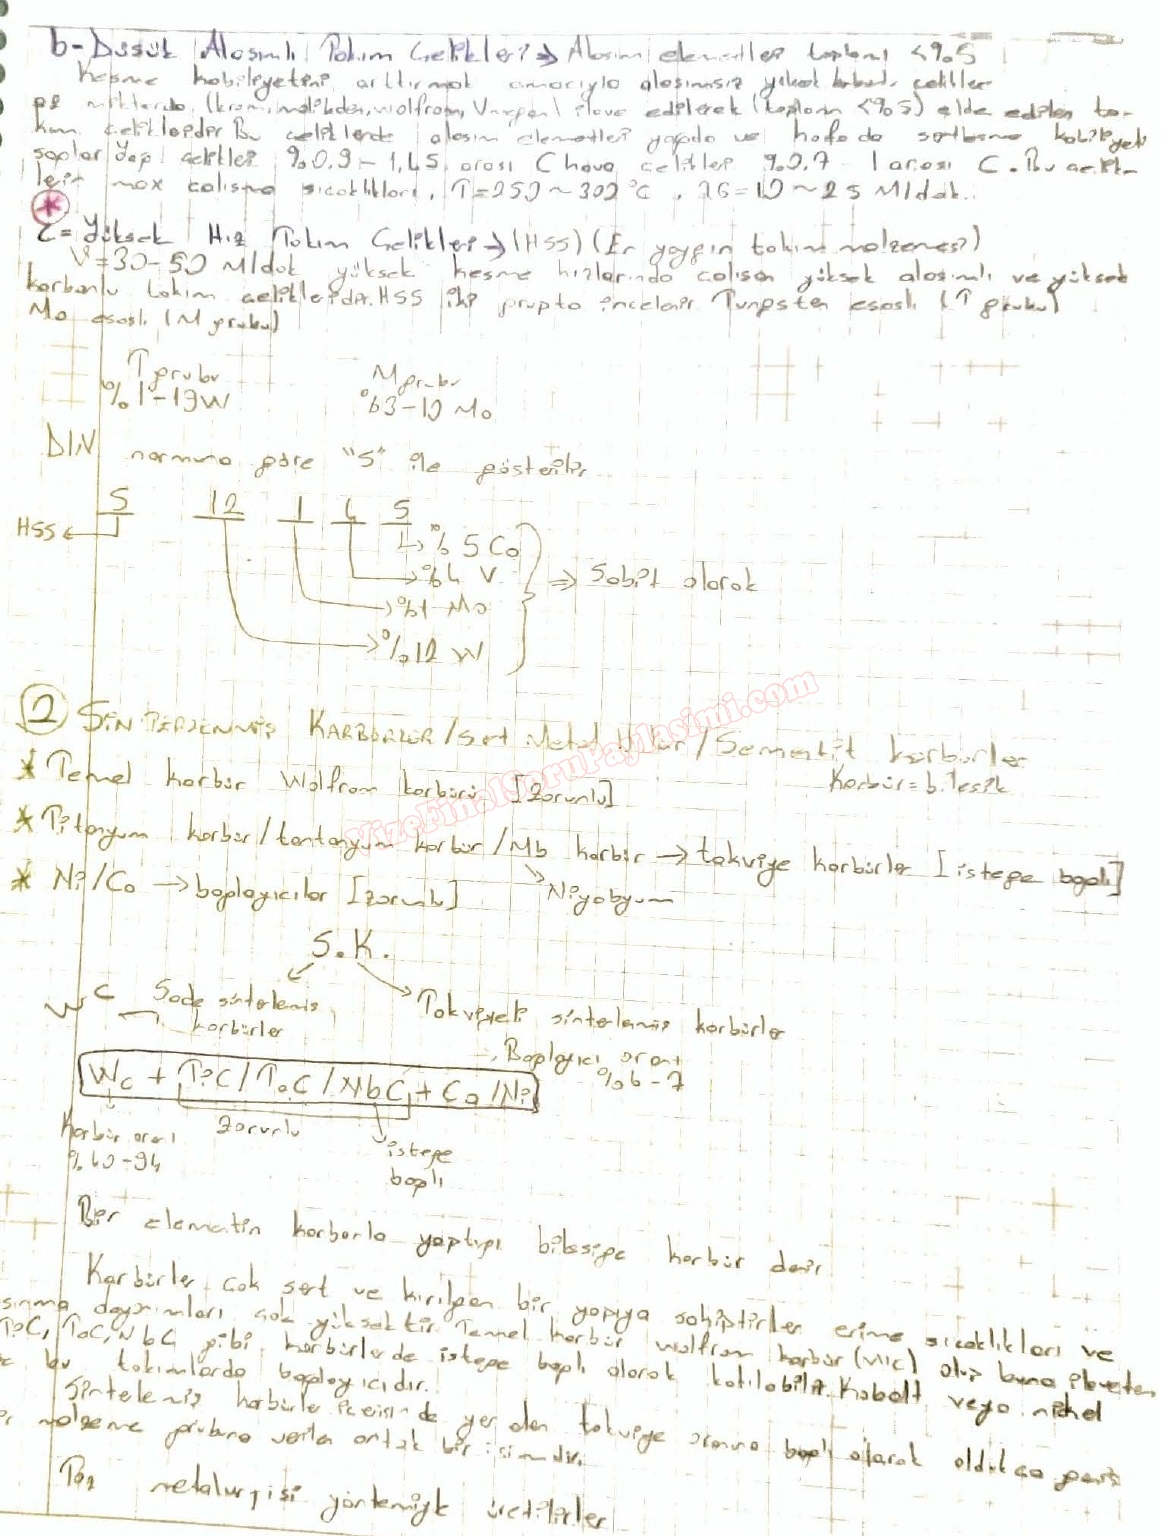 b- Düşük Alaşımlı Takım Çelikleri → Alaşım elementleri toplamı <%5
Kesme kabiliyetini arttırmak amacıyla alaşımsız yüksek karbonlu çelikler
miktarda (krom, molibden, wolfram, Vanadyum) ilave edilerek (toplam <%5) elde edilen ta-
kım çelikleridir Bu çeliklerde alaşım elementleri yağda ve havada sertleşme kabiliyeti
sağlar Yağ çelikleri %0.9 - 1,45 arası C hava çelikler %0.7 - 1 arası C. Bu çelik-
lerin max çalışma sıcaklıkları, T=250 ~ 300 °C, = 10 ~ 25 M/dak..
* c= Yüksek Hız Takım Çelikleri → (HSS) (En yaygın takım malzemesi)
V=30-50 M/dak yüksek kesme hızlarında çalışan yüksek alaşımlı ve yüksek
karbonlu takım çelikleridir. HSS iki grupta incelenir Tungsten esaslı (T grubu)
Mo esaslı (M grubu)
T grubu M grubu
%1-19W %3-10 Mo
DIN normuna göre "S" ile gösterilir
S 12 1 4 5
HSS
% 5 Co
%4 V ⇒ Sabit olarak
%1 Mo
%12 W
2 SİNTERLENMİŞ KARBÜRLER/Sert Metal /Sementit karbürler
* Temel karbür Wolfram karbürü [zorunlu] Karbür = bileşik
* Titanyum karbür/tantanyum karbür/Nb karbür → takviye karbürler [isteğe bağlı]
* Ni/Co → bağlayıcılar [zorunlu] Niyobyum
S.K.
WC Sade sinterlemiş Takviyeli sinterlemiş karbürler
karbürler
Bağlayıcı oranı
WC + TiC/TaC/NbC + Co/Ni %6-7
Karbür oranı zorunlu isteğe
%60-94 bağlı
Bir elementin karbonla yaptığı bileşiğe karbür denir
Karbürler çok sert ve kırılgan bir yapıya sahiptirler erime sıcaklıkları ve
dayanımları çok yüksektir Temel karbür wolfram karbür (WC) olup buna ilaveten
TiC, TaC, NbC gibi karbürlerde isteğe bağlı olarak katılabilir. Kobalt veya nikel
bu takımlarda bağlayıcıdır.
Sintelemiş karbürler içerisinde yer alan takviye oranına bağlı olarak oldukça geniş
malzeme grubuna verilen ortak bir isimdir.
Toz metalurjisi yöntemiyle üretilirler
VizeFinalSoruPaylasimi.com